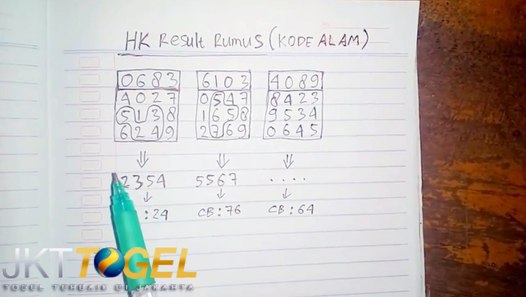 HK Result Rumus (KODE ALAM)
0683 6103 4089
4027 0547 8423
5138 1658 9534
6249 2769 0645
2354 5567 ....
: 24 CB : 76 CB : 64
JKTTOGEL
TOGEL TERBAIK DI JAKARTA